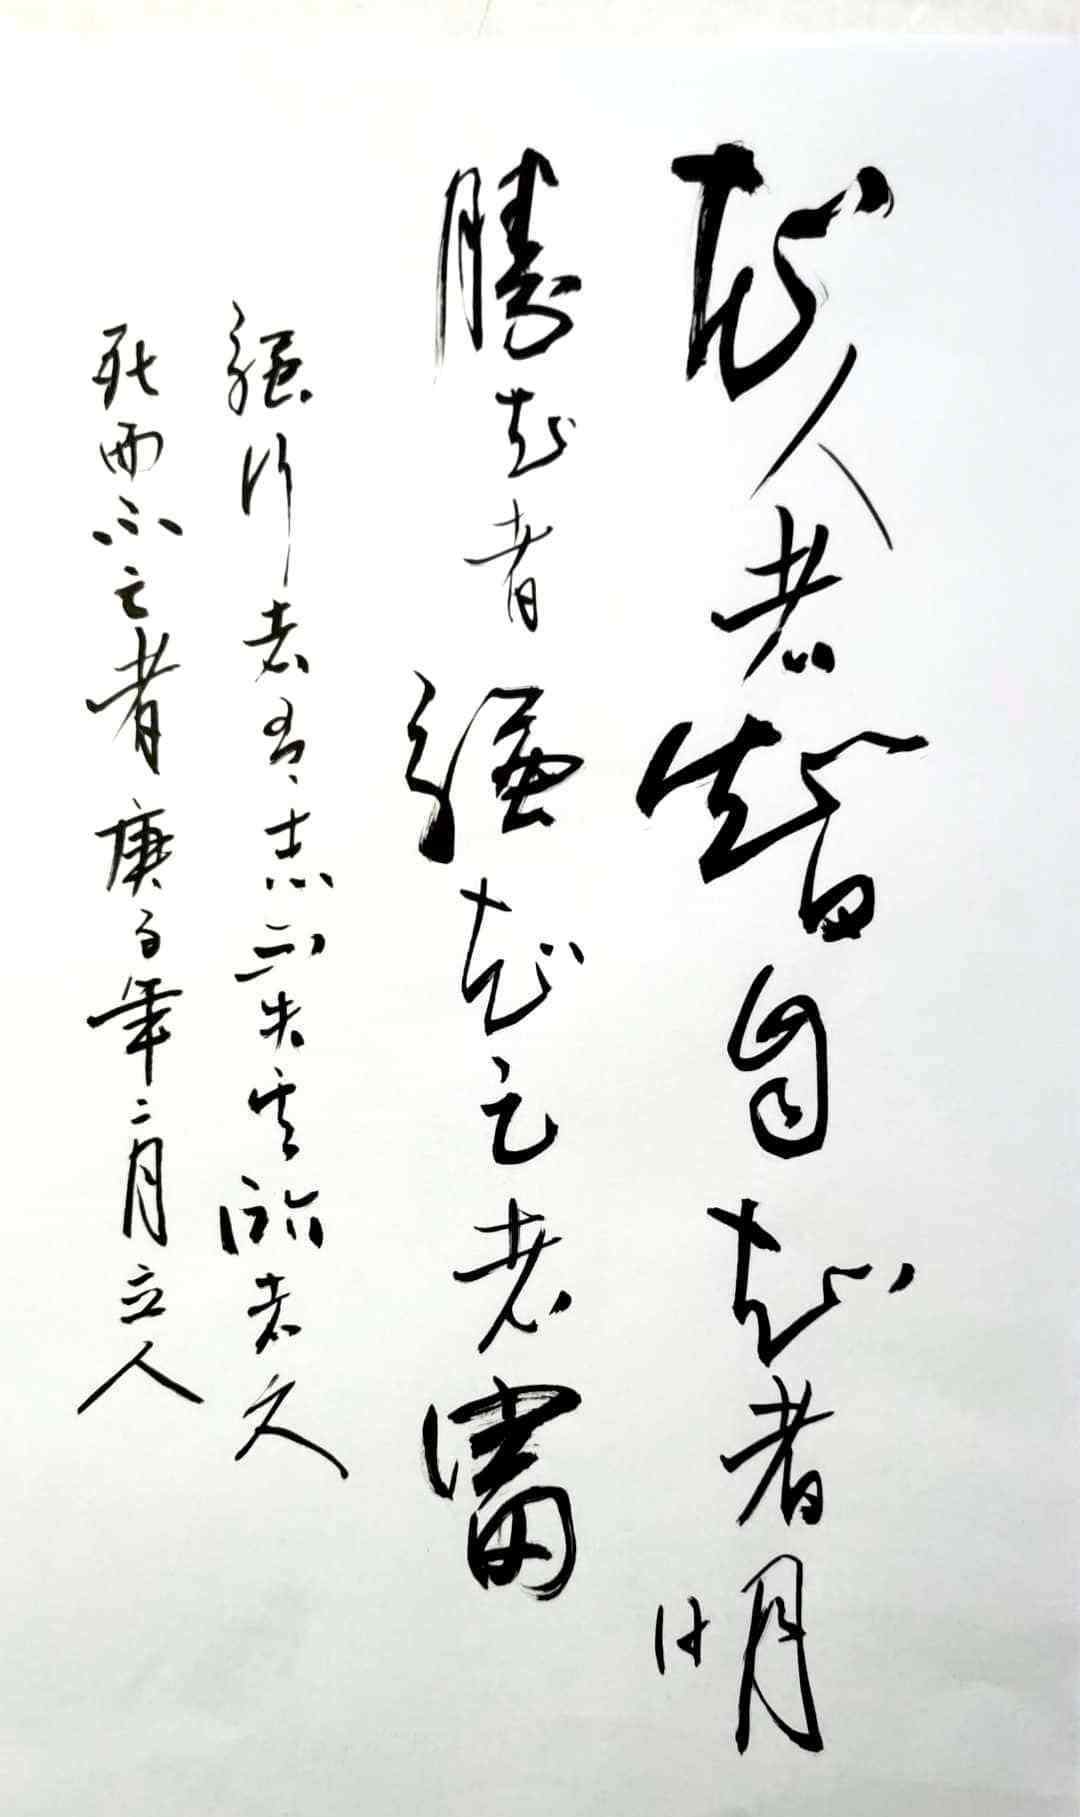 知人者智自知者明
勝知者強知足者富
強行者有志不失其所者久
死而不亡者庚子年二月立人